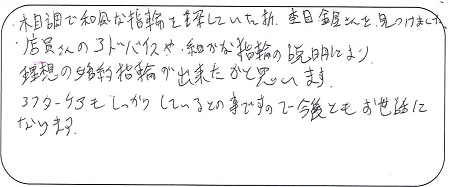 木目調で和風な指輪を探していた所、杢目金屋さんを見つけました
店員さんのアドバイスや、細かな指輪の説明により
理想の婚約指輪が出来たがと思います
アフターケアもしっかりしているとの事ですので今後ともお世話に
なります。